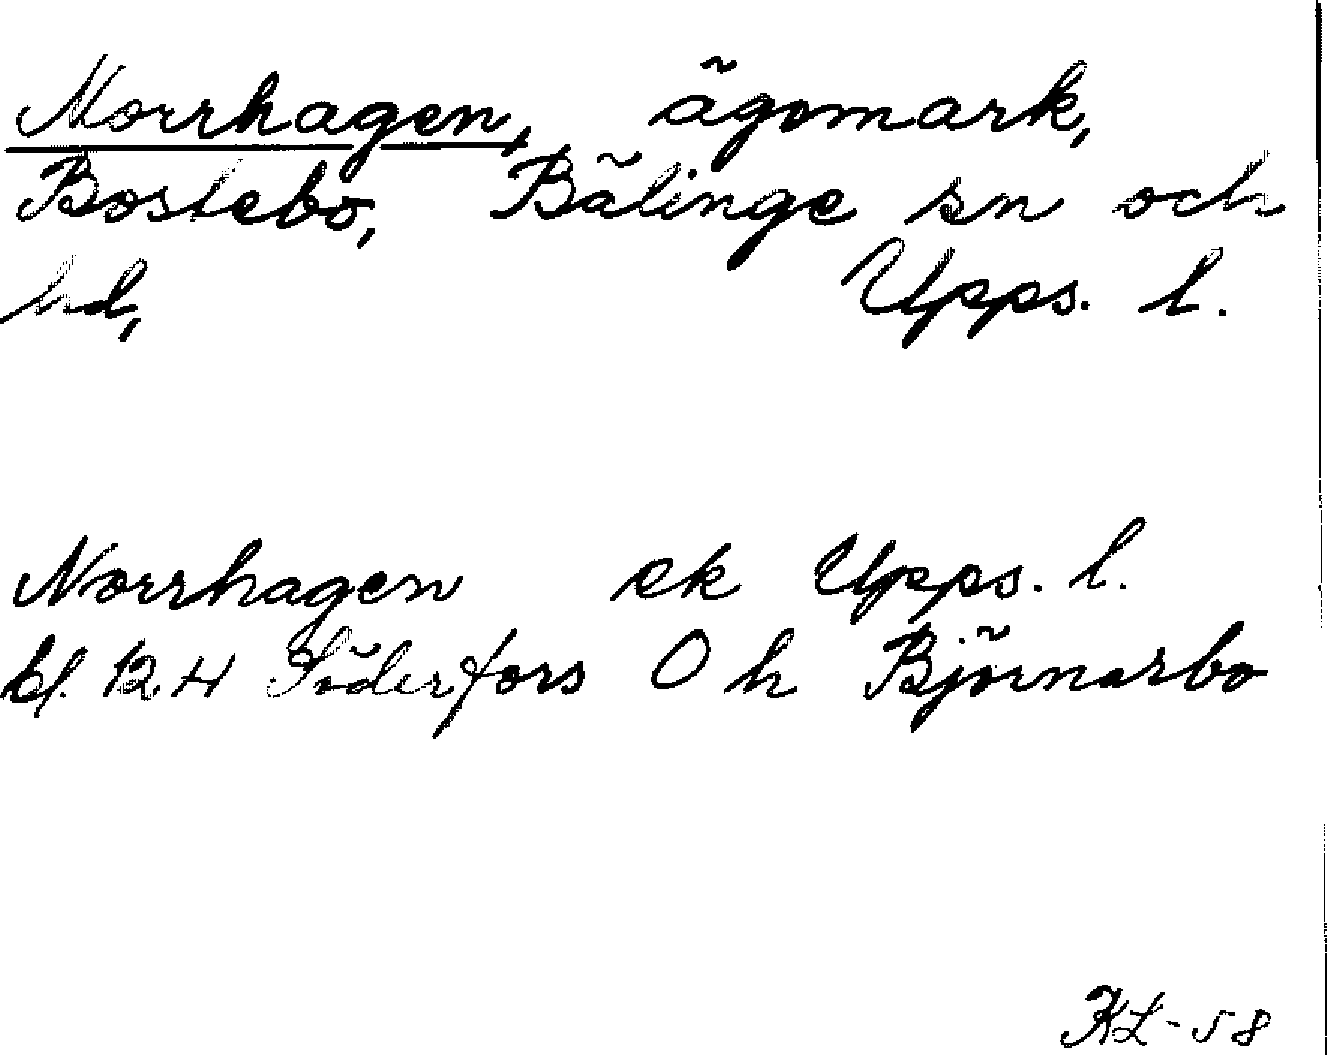 Norrhagen, ägomark,
Bostebo, Bälinge sn och
hd, Upps. l.
Norrhagen ek Upps. l.
bl. 124 Söderfors O h Björnarbo
KL-58